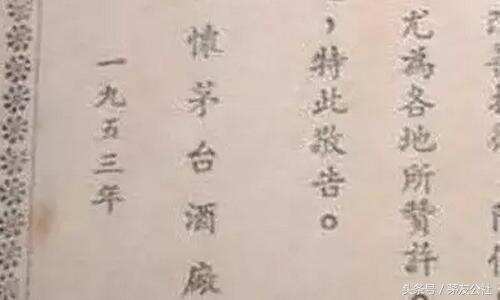 尤為各地所贊許
，特此敬告。
懷茅台酒廠
一九五三年
头条号 / 琴友公社